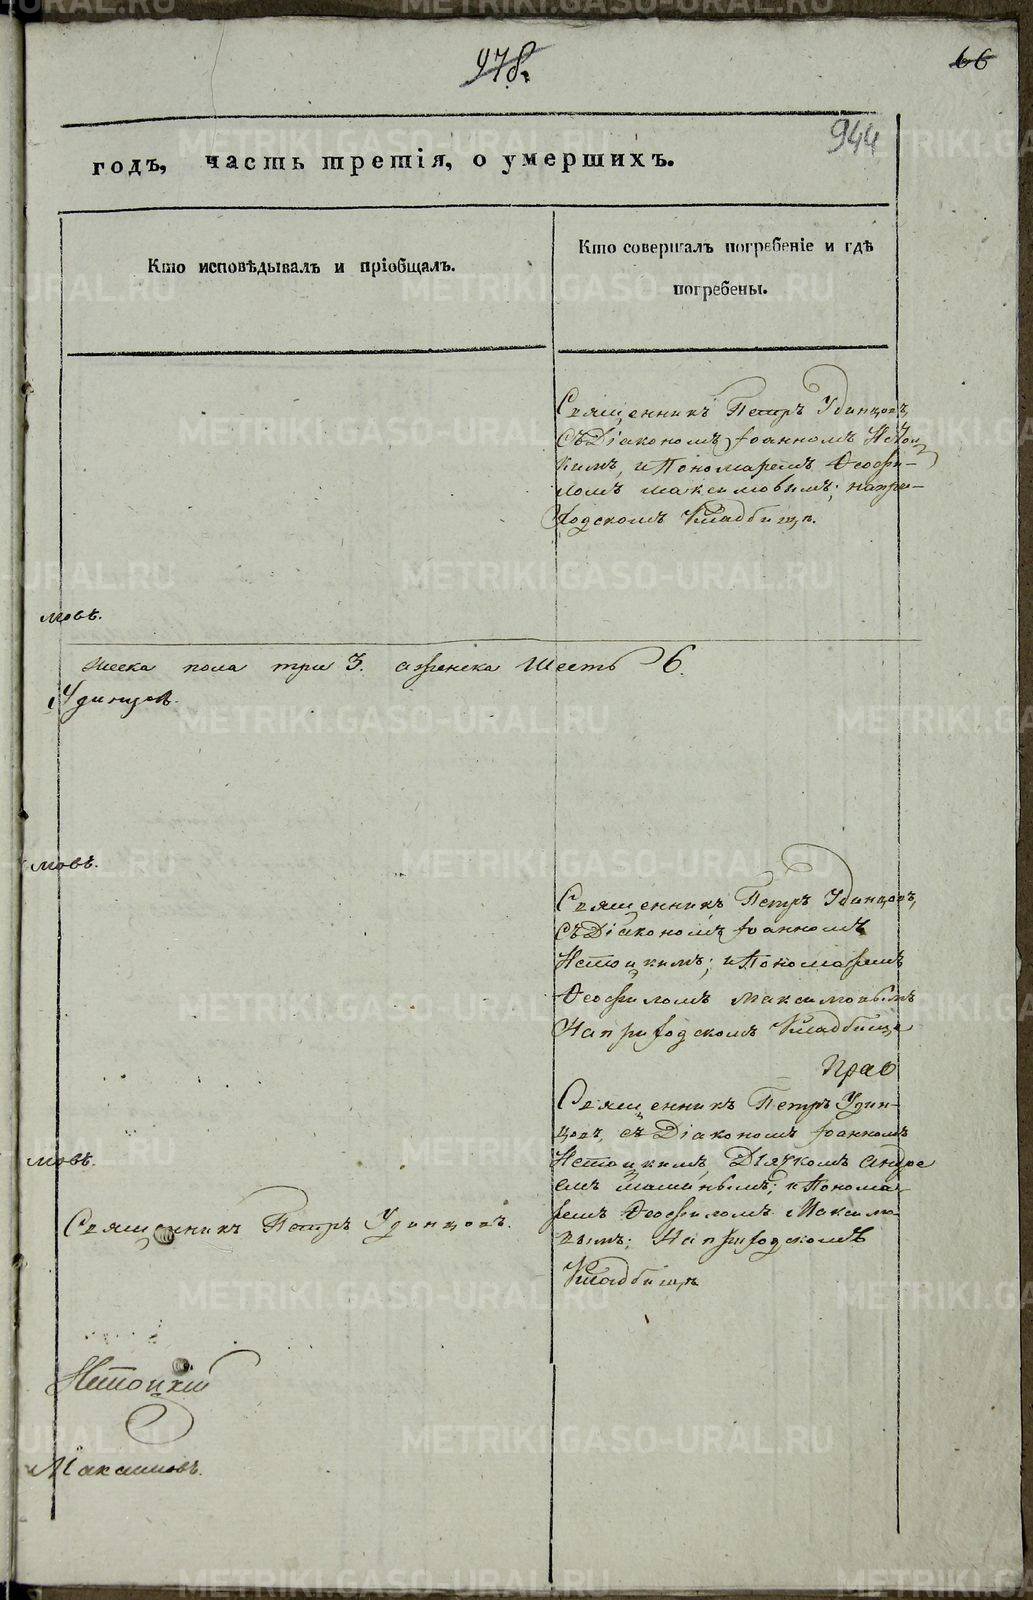 978.
66
944
годъ, часть третія, о умершихъ.
Кто исповѣдывалъ и пріобщалъ.
Кто совершалъ погребеніе и гдѣ
погребены.
Священникъ Петръ Удинцовъ,
Съ Діакономъ Іоанномъ
кимъ, и Пономаремъ Ѳеофи-
ломъ Максимовымъ; напри-
ходскомъ Кладбищѣ.
мовъ.
жеска пола три 3. аженска шесть 6.
Удинцовъ.
мовъ.
Священникъ Петръ Удинцовъ,
Съ Діакономъ Іоанномъ
Нетоцкимъ; и Пономаремъ
Ѳеофиломъ Максимовымъ
На приходскомъ Кладбище
Священникъ Петръ Удин-
цовъ, съ Діакономъ Іоанномъ
мовъ.
Нетоцкимъ, Дьячкомъ Андре
емъ и Понома-
ремъ Ѳеофиломъ Максимо
вымъ; На приходскомъ
Священникъ Петръ Удинцовъ.
Кладбищѣ
Нетоцкій
Максимовъ.
METRIKI.GASO-URAL.RU